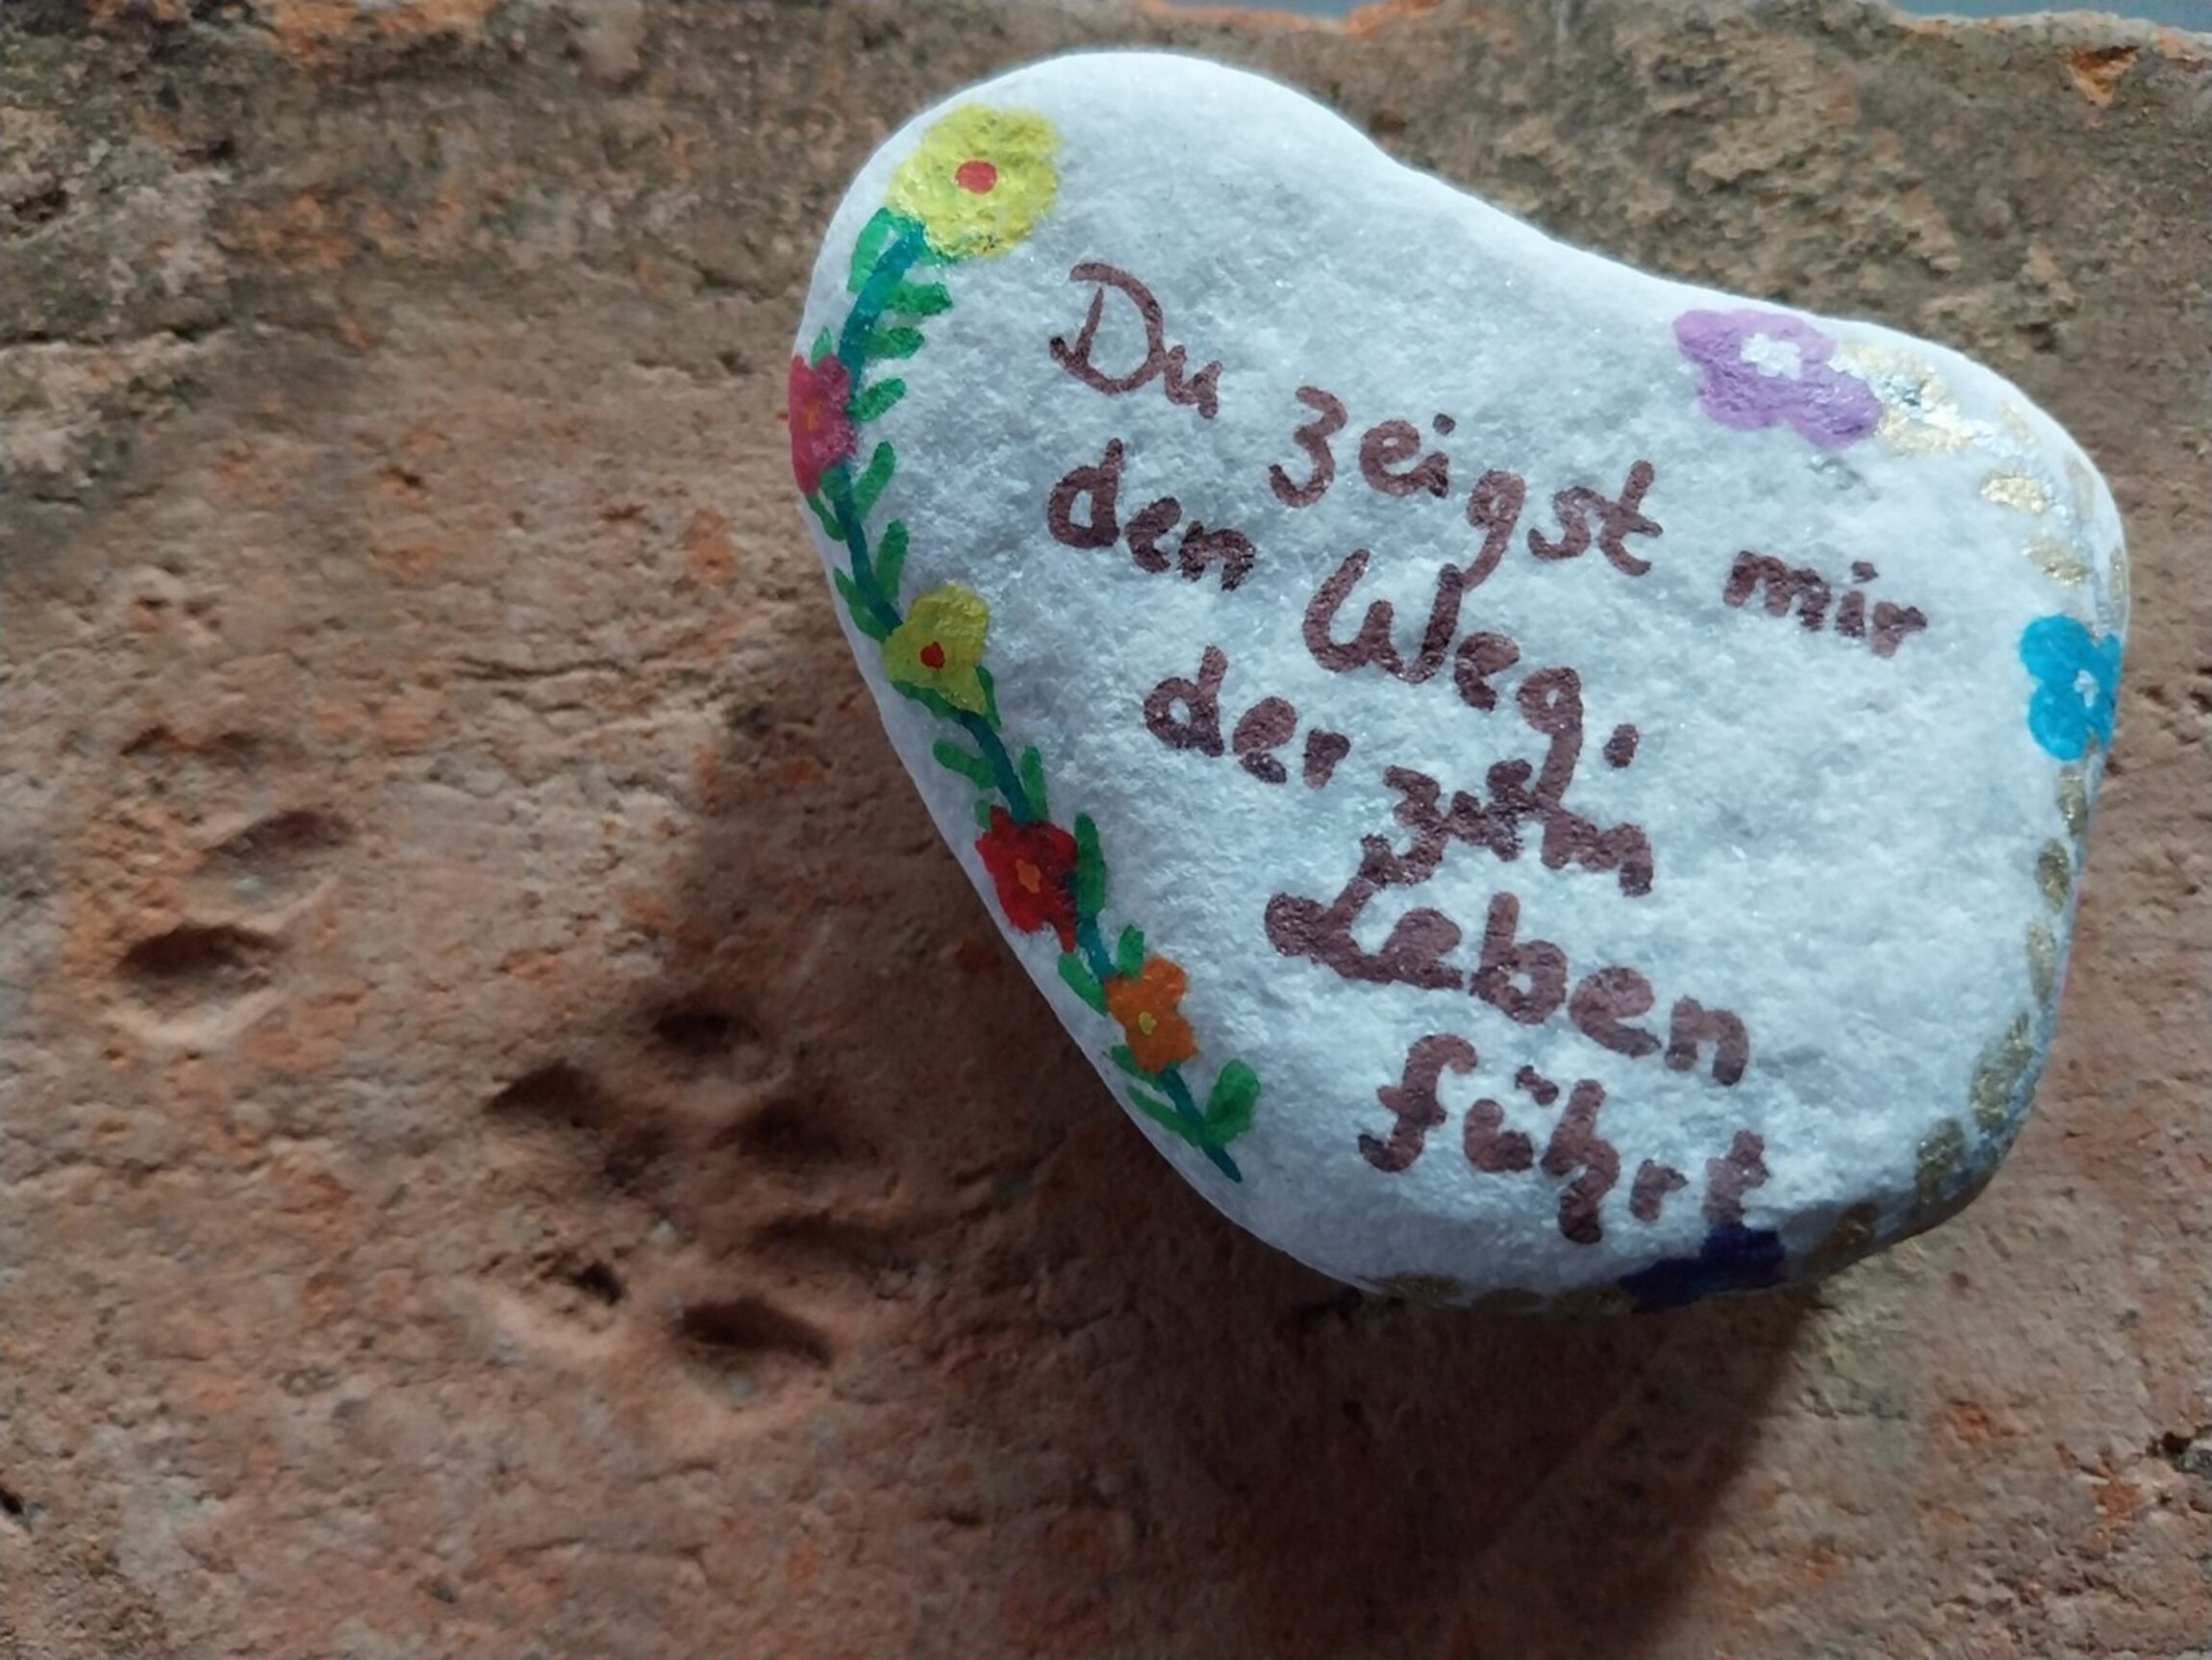 Du zeigst mir
den Weg.
der zum
Leben
führt